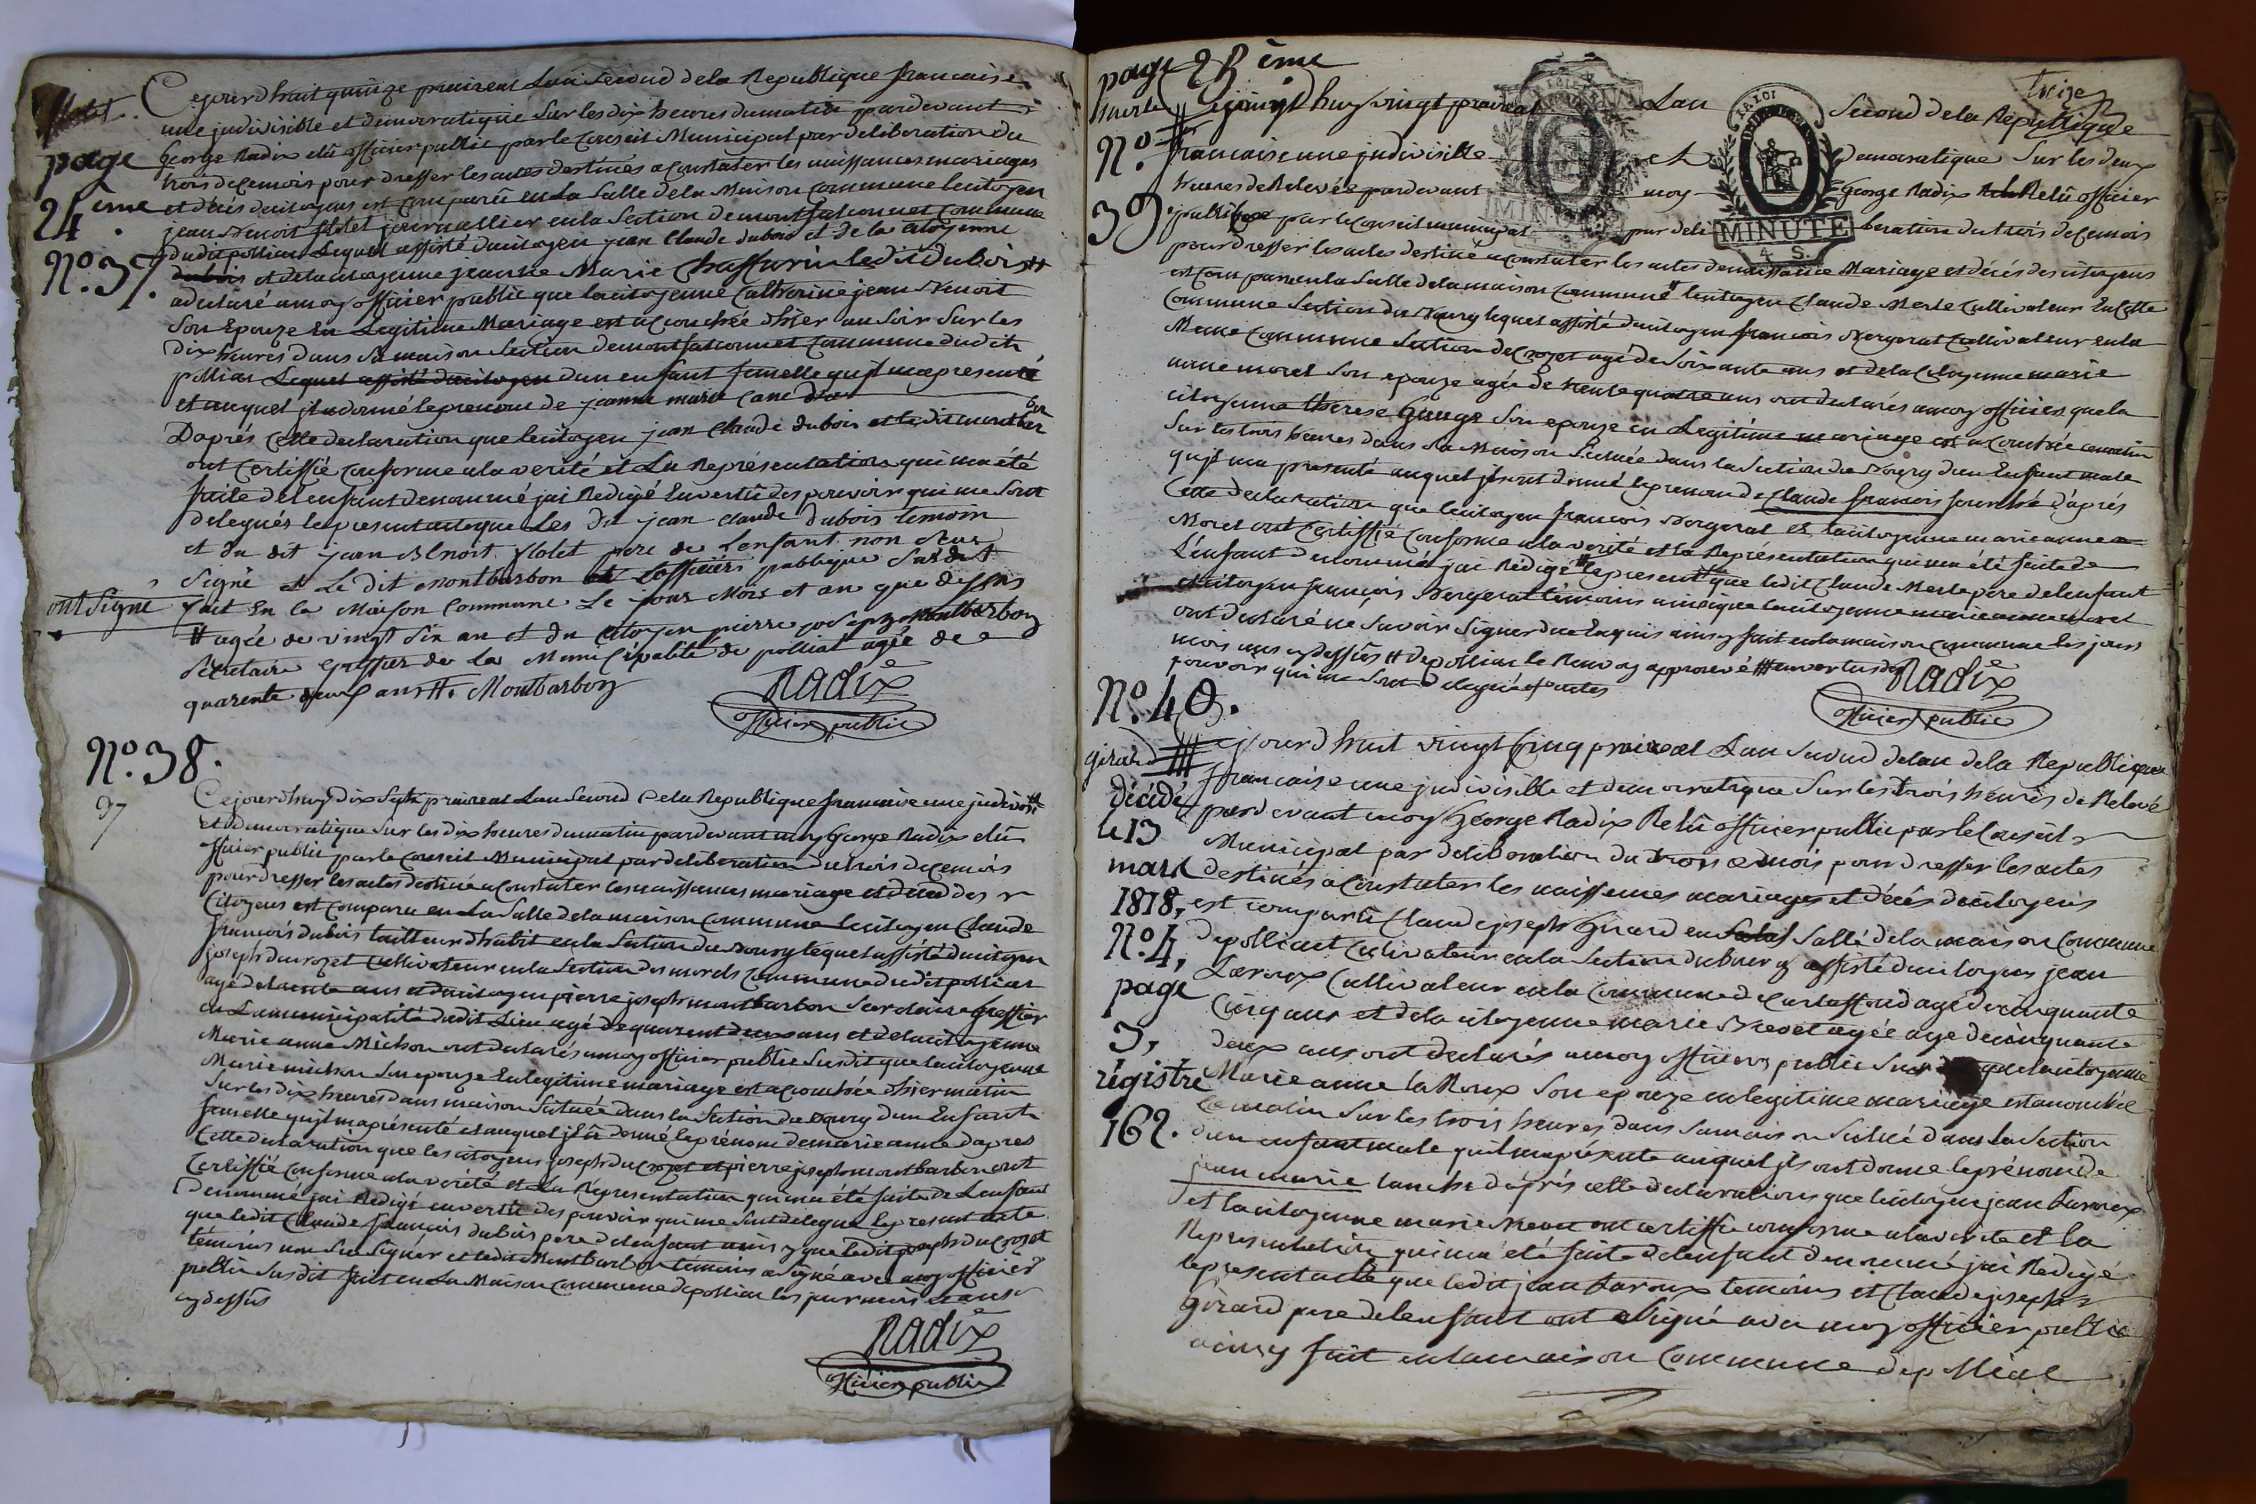 flotet
page
24 ème
N.° 37.
Cejourd huit quinze prairéal Lan second de la Republique francaise
une judivisible et démocratique Sur les dix heures du matin pardevant
George Radix elû officier public par le Conseil Municipal par deliberation du
trois de ce mois pour dresser les actes destinés a Constater les naissances mariages
et décés des citoyens est comparû en La Salle de la Maison Commune le citoyen
jean Benoit flotet journallier en la Section de montfalconnet Commune
dudit polliat Lequel assisté du citoyen jean Claude dubois et de la citoyenne
et de la citoyenne jeanne Marie Chaffurin ledit dubois #
a declaré a moy officier public que la citoyenne Catherine jean Benoit
Son Epouze En Legitime Mariage est acouchée d'hier au Soir Sur les
Dix heures dans Sa maison Section de montfalconnet Commune dudit
polliat Lequel assisté du citoyen dun enfant femelle qu'il ma presenté
et auquel jl a donné le prenom de jeanne marie
D'aprés Cette declaration que le citoyen jean Claude dubois et ledit montbar
bon
ont Certiffié Conforme a la verité et La Représentation qui ma été
faite de Lenfant denommé jai Redigé En vertû des pouvoirs qui me Sont
delegués le present acte que Les dit jean Claude dubois temoin
et du dit jean Benoit flotet pere de Lenfant non Sçu
Signé et Le dit montbarbon et Lofficier publique Susdit
ont Signé fait En La Maison Commune Le jour Mois et an que dessus
# agée de vingt Six an et du Citoyen pierre joseph Montbarbon
Secretaire Greffier de La Municipalité de polliat agée de
quarente deux ans #. Montbarbon
Radix
officier public
N.° 38.
37
Cejourd'huy Dix Sept prairéal Lan Second de la Republique francaise une judivisi #
Et democratique Sur les dix heures du matin pardevant moy George Radix elû
officier public par le Conseil Municipal par deliberation du trois de ce mois
pour dresser les actes destiné a Constater les naissances mariage et décés des
Citoyens est Comparu en La Salle de la maison Commune le citoyen Claude
francois dubois tailleur d'habit en la Section du Bourg lequel assisté du citoyen
joseph ducrozet cultivateur en la Section des morels Commune dudit polliat
agé de trente ans et du citoyen pierre joseph montbarbon Secretaire greffier
de La municipalité dudit Lieu agé de quarent deux ans et de la citoyenne
Marie anne Michon ont declarés a moy officier public Susdit que la citoyenne
Marie michon Son epouze En legitime mariage est acouchée d'hier matin
Sur les dix heures dans maison Située dans la Section du Bourg dun Enfant
femelle qu'jl ma présenté et auquel jl a donné le prénom de marie anne d'apres
Cette declaration que les citoyens joseph ducrozet et pierre joseph montbarbon ont
Certiffié Conforme a la verité et La Représentation qui ma été faite de Lenfant
Denommé jai Redigé en vertû des pouvoir qui me Sont delegué le present acte
que ledit Claude françois dubois pere de lenfant ainsy que ledit joseph ducrozet
témoins non Sçu Signer et ledit Montbarbon témoins a Signé avec moy officier
public Susdit fait en La Maison Commune de polliat les jour mois et an
cy dessus
Radix
officier public
page 25 ème
treize
merle
N.°
39.
Cejourd'huy vingt prairéal Lan Second de la République
francaise une judivisible et Démocratique Sur les deux
heures de Relevée pardevant moy George Radix Relû officier
public par le Conseil municipal par deliberation du trois de ce mois
LA LOI
MINUTE
4 S.
pour dresser les actes destiné a Constater les actes de naissance Mariage et décés des citoyens
est Comparu en la Salle de la maison Commune # le citoyen Claude Merle Cultivateur En Cette
Commune Section du Bourg lequel assisté du citoyen francois Bergerat Cultivateur en la
Meme Commune Section de Crozet agé de Soixante ans et de la Citoyenne marie
anne moret Son epouze agée de trente quatre ans ont declarés a moy officier que la
citoyenne therese Son epouze en Legitime mariage est acouchée ce matin
Sur les trois heures dans sa Maison Située dans la Section du Bourg dun Enfant male
qu'jl ma presenté auquel jls ont donné le prenom de Claude francois d'aprés
Cette declaration que le citoyen francois Bergerat et la citoyenne marie anne
Moret ont Certiffié Conforme a la verité et la Representation qui ma été faite de
L'enfant denommé jai Rédigé # le present que ledit Claude Merle pere de lenfant
et le citoyen françois Bergerat témoins ainsi que la citoyenne marie anne moret
ont declaré ne Savoir Signer de ce Enquis ainsy fait en la maison Commune les jours
mois ans cy dessûs # de polliat le Renvoy approuvé # en vertu des
pouvoir qui me Sont delegué
Radix
officier public
N.° 40.
girard
décédé
le 13
mars
1818,
N.° 4,
page
3,
régistre
162.
Cejourd huit vingt Cinq prairéal L'an Second de lan de la République
francaise une judivisible et démocratique Sur les trois heures de Relevé
pardevant moy George Radix Relû officier public par le Conseil
Municipal par deliberation du trois ce mois pour dresser les actes
destinés a Constater les naissances mariages et décés des citoyens
est comparû Claude joseph Girard en Salle de la maison Commune
de polliat Cultivateur en la Section du bourg assisté du citoyen jean
Laroux Cultivateur en la Commune de agé de cinquante
Cinq ans et de la citoyenne marie agée age de cinquante
deux ans ont declarés a moy officier public Sus que la citoyenne
Marie anne la Roux Son epouze en legitime mariage est acouchée
Ce matin Sur les trois heures dans Sa maison Situé dans La Section
d'un enfant male qu'il ma présenté auquel jls ont donné le prénom de
jean marie d'aprés cette declarations que le citoyen jean Laroux
et la citoyenne marie ont certiffié conforme a la verité et la
Representation qui ma été faite de lenfant denommé jai Redigé
le present acte que ledit jean Laroux temoins et Claude joseph
Girard pere de lenfant ont Signé avec moy officier public
ainsy fait en la maison Commune de polliat